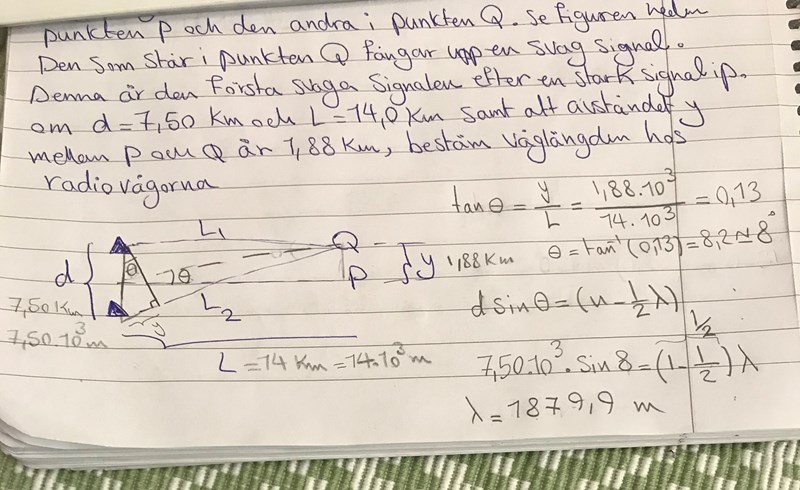 punkten P och den andra i punkten Q. Se figuren nedan
Den som står i punkten Q fångar upp en svag signal.
Denna är den första svaga signalen efter en stark signal i p.
om d = 7,50 km och L = 14,0 km samt att avståndet y
mellan P och Q är 1,88 km, bestäm våglängden hos
radiovågorna
tanθ = y/L = 1,88·10³/14·10³ = 0,13
θ = tan⁻¹(0,13) = 8,2 ≈ 8°
L₁
Q
d
θ
θ
P
y 1,88 km
7,50 km
L₂
7,50·10³ m
y
L = 14 km = 14·10³ m
d sinθ = (n - 1/2 λ)
1/2
7,50·10³ · sin 8 = (1 - 1/2) λ
λ = 1879,9 m